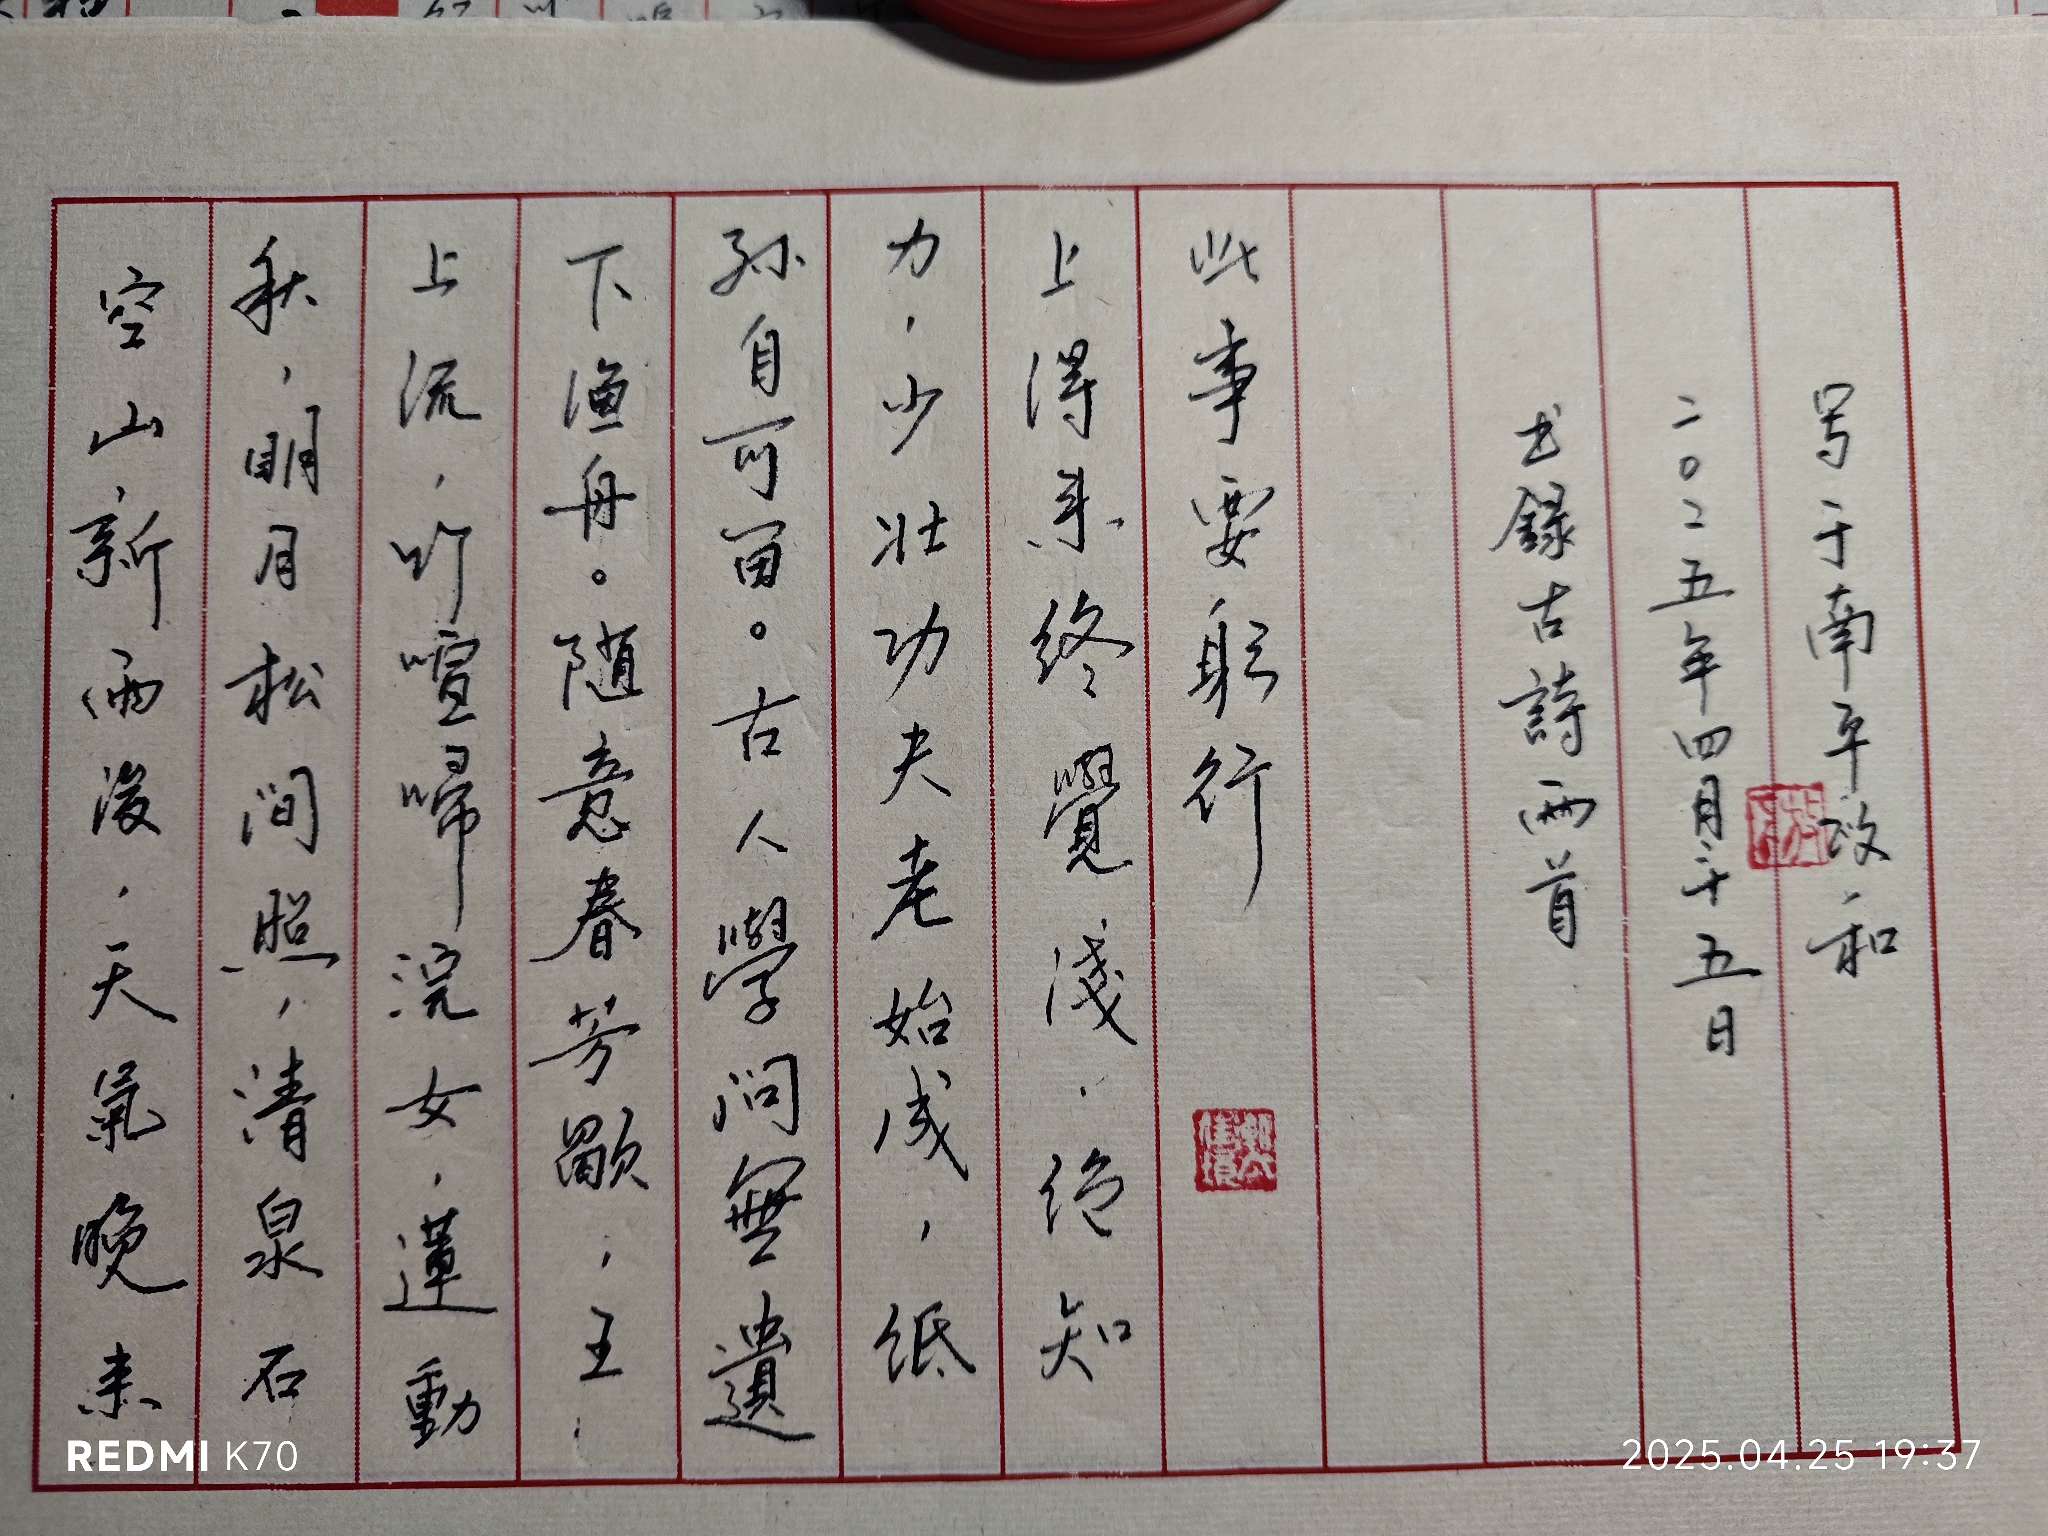 空山新雨後，天氣晚来
秋，明月松间照，清泉石
上流，竹喧歸浣女，蓮動
下渔舟。随意春芳歇，王
孙自可留。古人學问無遺
力，少壮功夫老始成，纸
上得来终覺淺，绝知
此事要躬行
书錄古詩两首
二〇二五年四月二十五日
写于南平政和
REDMI K70
2025.04.25 19:37